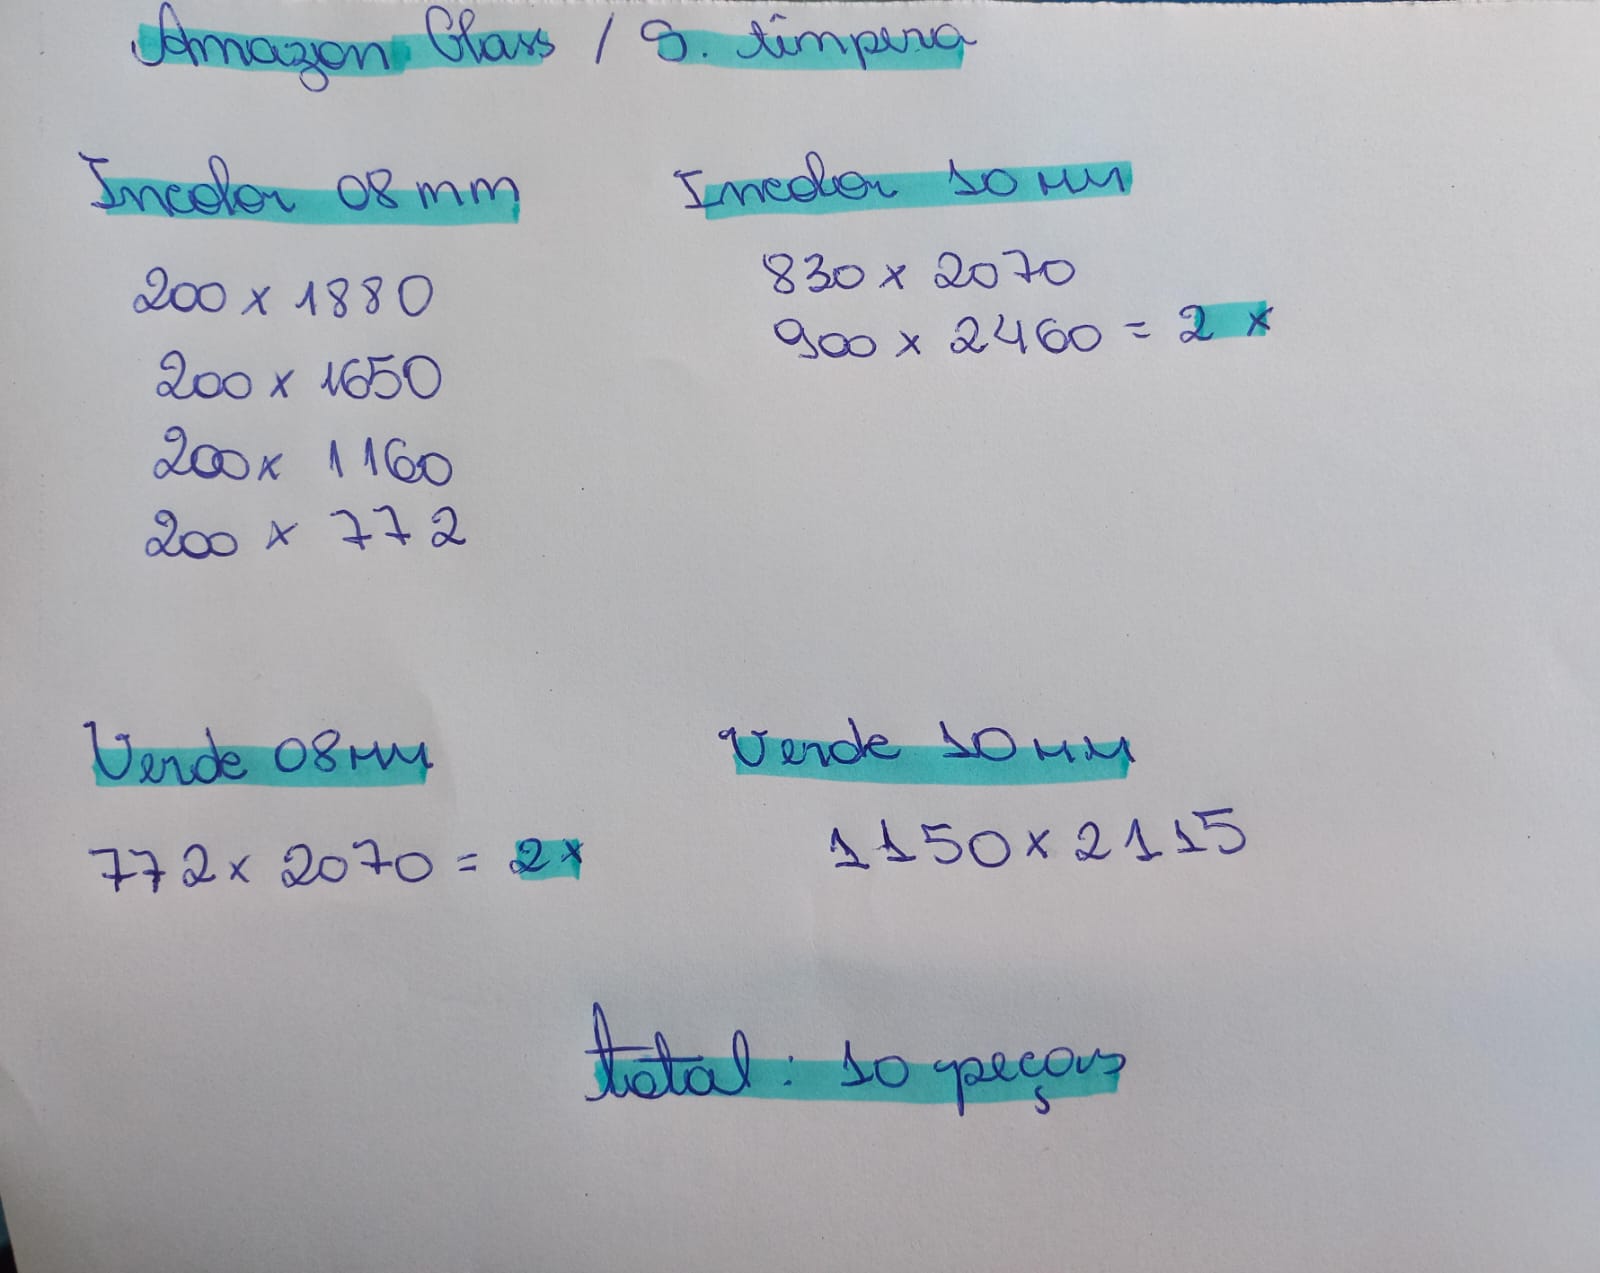 Amazon Glass / S. têmpera
Incolor 08mm
200 x 1880
200 x 1650
200 x 1160
200 x 772
Incolor 10mm
830 x 2070
900 x 2460 = 2 x
Verde 08mm
772 x 2070 = 2 x
Verde 10mm
1150 x 2115
total: 10 peças